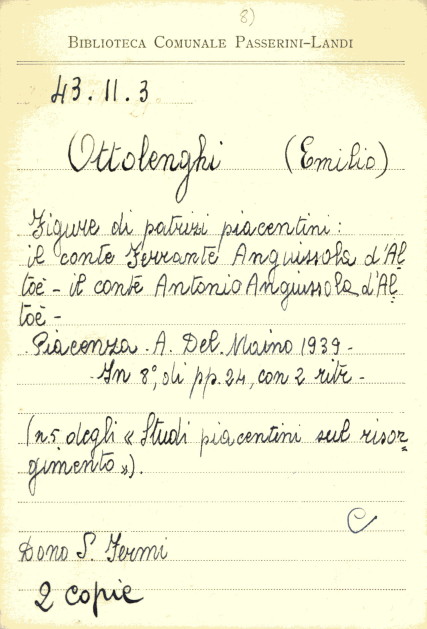 8)
BIBLIOTECA COMUNALE PASSERINI-LANDI
43.II.3
Ottolenghi (Emilio)
Figure di patrizi piacentini:
il conte Ferrante Anguissola d'Al
toè - il conte Antonio Anguissola d'Al
toè -
Piacenza - A. Del Maino 1939 -
- In 8°, di pp. 24, con 2 ritr -
(n. 5 degli « Studi piacentini sul risor=
gimento »).
C
Dono S. Fermi
2 copie